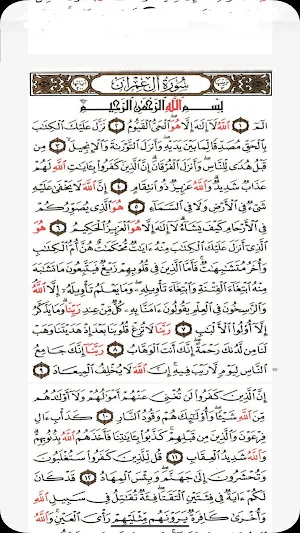 سورة آل عمران
بسم الله الرحمن الرحيم
الٓمٓ ١ ٱللَّهُ لَآ إِلَٰهَ إِلَّا هُوَ ٱلْحَىُّ ٱلْقَيُّومُ ٢ نَزَّلَ عَلَيْكَ ٱلْكِتَٰبَ
بِٱلْحَقِّ مُصَدِّقًا لِّمَا بَيْنَ يَدَيْهِ وَأَنزَلَ ٱلتَّوْرَىٰةَ وَٱلْإِنجِيلَ ٣ مِن
قَبْلُ هُدًى لِّلنَّاسِ وَأَنزَلَ ٱلْفُرْقَانَ إِنَّ ٱلَّذِينَ كَفَرُوا۟ بِـَٔايَٰتِ ٱللَّهِ لَهُمْ
عَذَابٌ شَدِيدٌ وَٱللَّهُ عَزِيزٌ ذُو ٱنتِقَامٍ ٤ إِنَّ ٱللَّهَ لَا يَخْفَىٰ عَلَيْهِ
شَىْءٌ فِى ٱلْأَرْضِ وَلَا فِى ٱلسَّمَآءِ ٥ هُوَ ٱلَّذِى يُصَوِّرُكُمْ
فِى ٱلْأَرْحَامِ كَيْفَ يَشَآءُ لَآ إِلَٰهَ إِلَّا هُوَ ٱلْعَزِيزُ ٱلْحَكِيمُ ٦ هُوَ
ٱلَّذِىٓ أَنزَلَ عَلَيْكَ ٱلْكِتَٰبَ مِنْهُ ءَايَٰتٌ مُّحْكَمَٰتٌ هُنَّ أُمُّ ٱلْكِتَٰبِ
وَأُخَرُ مُتَشَٰبِهَٰتٌ فَأَمَّا ٱلَّذِينَ فِى قُلُوبِهِمْ زَيْغٌ فَيَتَّبِعُونَ مَا تَشَٰبَهَ
مِنْهُ ٱبْتِغَآءَ ٱلْفِتْنَةِ وَٱبْتِغَآءَ تَأْوِيلِهِۦ وَمَا يَعْلَمُ تَأْوِيلَهُۥٓ إِلَّا ٱللَّهُ
وَٱلرَّٰسِخُونَ فِى ٱلْعِلْمِ يَقُولُونَ ءَامَنَّا بِهِۦ كُلٌّ مِّنْ عِندِ رَبِّنَا وَمَا يَذَّكَّرُ
إِلَّآ أُو۟لُوا۟ ٱلْأَلْبَٰبِ ٧ رَبَّنَا لَا تُزِغْ قُلُوبَنَا بَعْدَ إِذْ هَدَيْتَنَا وَهَبْ
لَنَا مِن لَّدُنكَ رَحْمَةً إِنَّكَ أَنتَ ٱلْوَهَّابُ ٨ رَبَّنَآ إِنَّكَ جَامِعُ
ٱلنَّاسِ لِيَوْمٍ لَّا رَيْبَ فِيهِ إِنَّ ٱللَّهَ لَا يُخْلِفُ ٱلْمِيعَادَ ٩
إِنَّ ٱلَّذِينَ كَفَرُوا۟ لَن تُغْنِىَ عَنْهُمْ أَمْوَٰلُهُمْ وَلَآ أَوْلَٰدُهُم
مِّنَ ٱللَّهِ شَيْـًٔا وَأُو۟لَٰٓئِكَ هُمْ وَقُودُ ٱلنَّارِ ١٠ كَدَأْبِ ءَالِ
فِرْعَوْنَ وَٱلَّذِينَ مِن قَبْلِهِمْ كَذَّبُوا۟ بِـَٔايَٰتِنَا فَأَخَذَهُمُ ٱللَّهُ بِذُنُوبِهِمْ
وَٱللَّهُ شَدِيدُ ٱلْعِقَابِ ١١ قُل لِّلَّذِينَ كَفَرُوا۟ سَتُغْلَبُونَ
وَتُحْشَرُونَ إِلَىٰ جَهَنَّمَ وَبِئْسَ ٱلْمِهَادُ ١٢ قَدْ كَانَ
لَكُمْ ءَايَةٌ فِى فِئَتَيْنِ ٱلْتَقَتَا فِئَةٌ تُقَٰتِلُ فِى سَبِيلِ ٱللَّهِ
وَأُخْرَىٰ كَافِرَةٌ يَرَوْنَهُم مِّثْلَيْهِمْ رَأْىَ ٱلْعَيْنِ وَٱللَّهُ